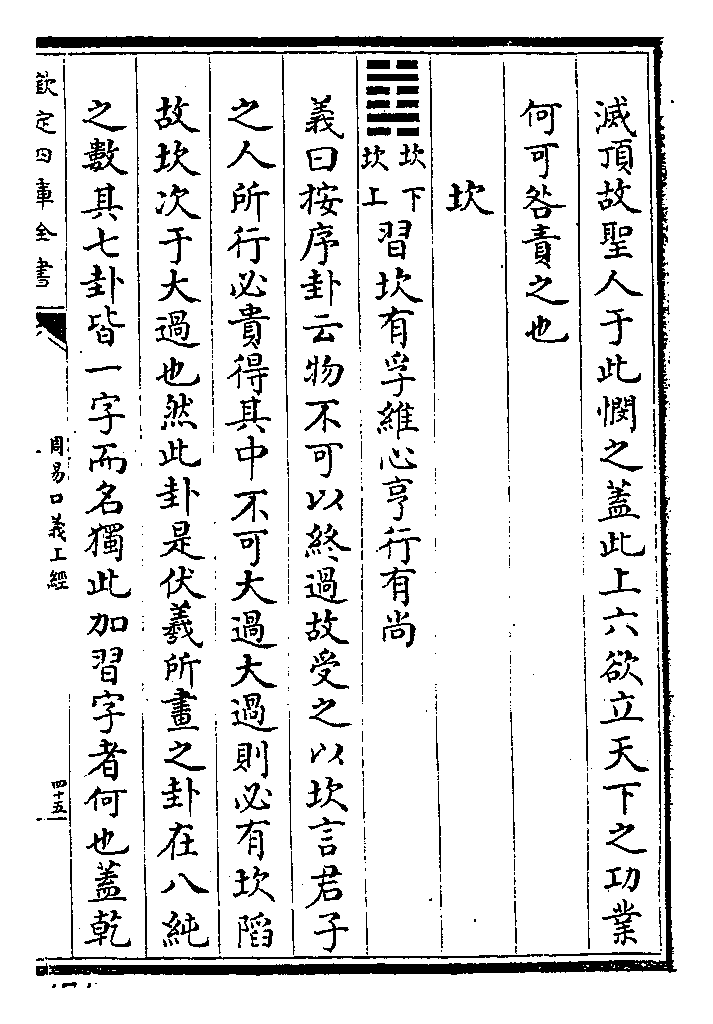 滅頂故聖人于此憫之蓋此上六欲立天下之功業
何可咎責之也
坎
䷜坎下坎上習坎有孚維心亨行有尚
義曰按序卦云物不可以終過故受之以坎言君子
之人所行必貴得其中不可大過大過則必有坎陷
故坎次于大過也然此卦是伏羲所畫之卦在八純
之數其七卦皆一字而名獨此加習字者何也蓋乾
欽定四庫全書
周易口義上經
四十五